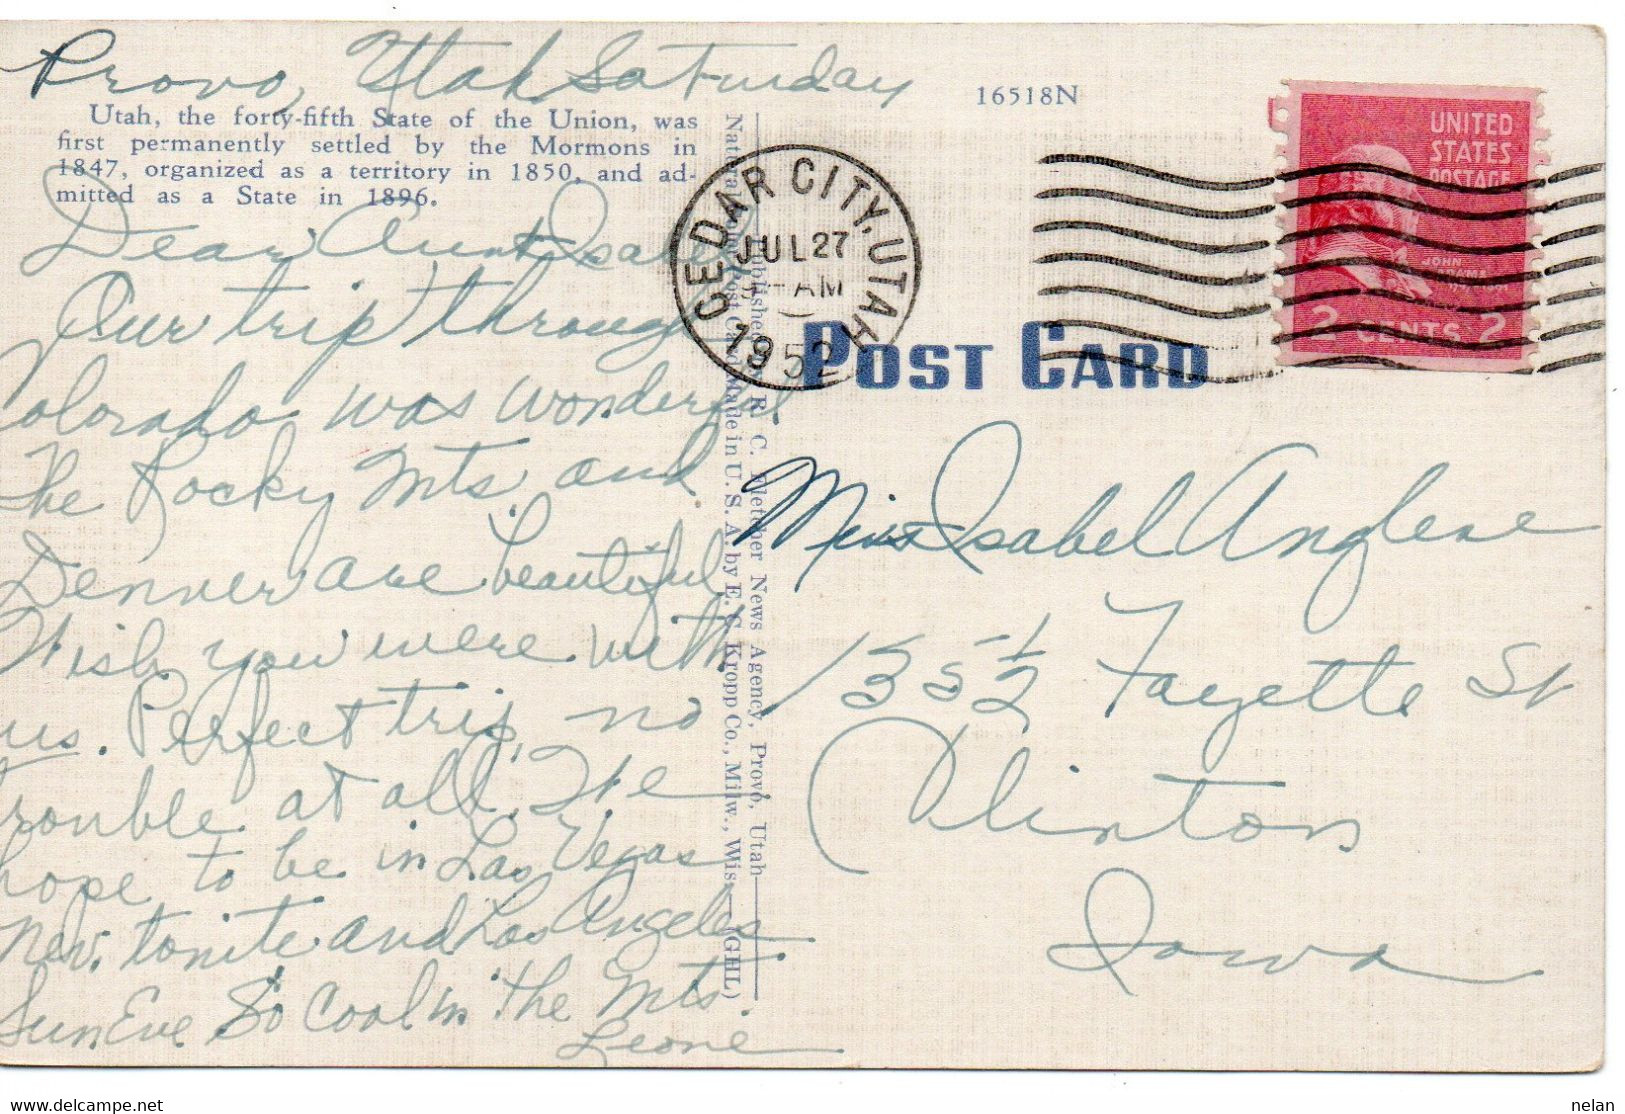 Provo, Utah Saturday
Utah, the forty-fifth State of the Union, was
first permanently settled by the Mormons in
1847, organized as a territory in 1850, and ad-
mitted as a State in 1896.
Dear Aunt Isabel
Our trip through
Colorado was wonderful.
The Rocky Mts. and
Denver are beautiful
Wish you were with
us. Perfect trip, no
trouble at all. We
hope to be in Las Vegas
Nev. tonite and Los Angeles
Sun Eve So Cool in the Mts.
Leone
Published by R. C. Fletcher News Agency, Provo, Utah
Natural Color Post Card Made in U. S. A. by E. C. Kropp Co., Milw., Wis. (GHL)
16518N
CEDAR CITY, UTAH
JUL 27
AM
1952
UNITED
STATES
POSTAGE
JOHN
ADAMS
2 CENTS 2
POST CARD
Miss Isabel Anglese
135 1/2 Fayette St
Clinton
Iowa
nelan
www.delcampe.net